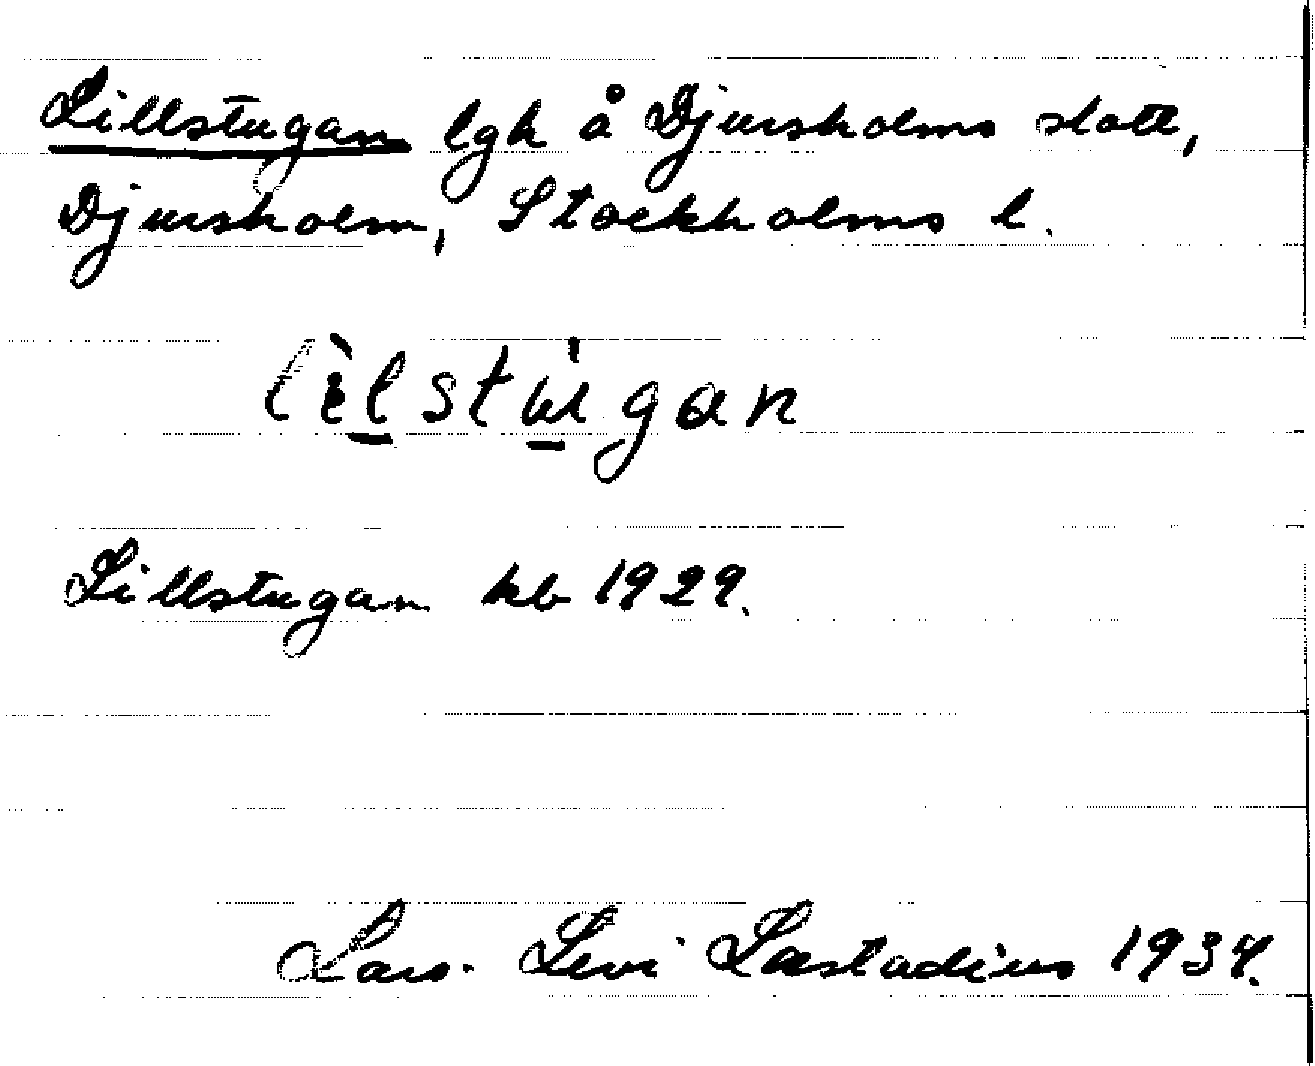 Lillstugan lgh å Djursholms slott,
Djursholm, Stockholms l.
lìlstú̱gan
Lillstugan kb 1929.
Lars-Levi Læstadius 1934.